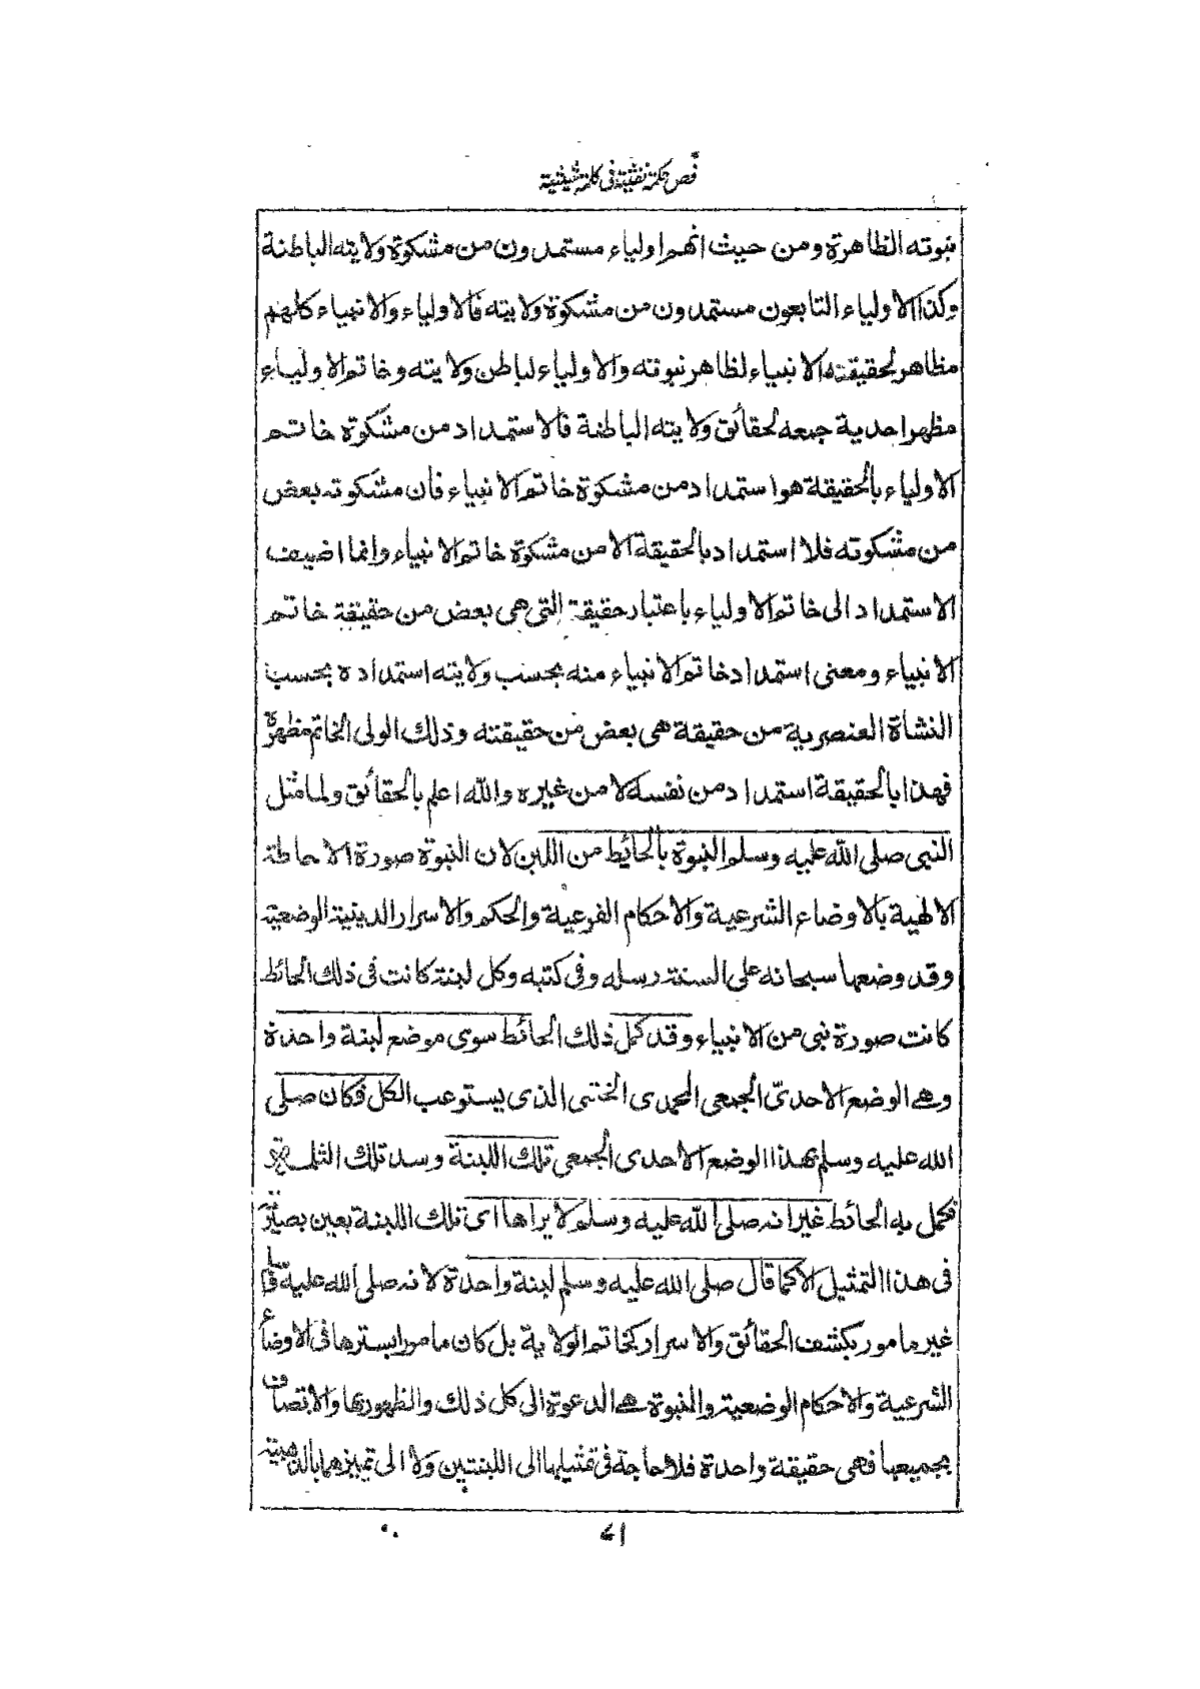 فص حكمة نفثية فى كلمة شيثية
نبوته الظاهرة ومن حيث انهم اولياء مستمدون من مشكوة ولايته الباطنة
وكذا الاولياء التابعون مستمدون من مشكوة ولايته فالاولياء والانبياء كلهم
مظاهر لحقيقته الانبياء لظاهر نبوته والاولياء لباطن ولايته وخاتم الاولياء
مظهر احدية جمعه لحقائق ولايته الباطنة فالاستمداد من مشكوة خاتم
الاولياء بالحقيقة هو استمداد من مشكوة خاتم الانبياء فان مشكوته بعض
من مشكوته فلا استمداد بالحقيقة الا من مشكوة خاتم الانبياء وانما اضيف
الاستمداد الى خاتم الاولياء باعتبار حقيقة التى هى بعض من حقيقة خاتم
الانبياء ومعنى استمداد خاتم الانبياء منه بحسب ولايته استمداده بحسب
النشاة العنصرية من حقيقة هى بعض من حقيقته وذلك الولى الخاتم مظهرة
فهذا بالحقيقة استمداد من نفسه لا من غيره والله اعلم بالحقائق ولما مثل
النبى صلى الله عليه وسلم النبوة بالحائيط من اللبن لان النبوة صورة الاحاطة
الالهية بالاوضاع الشرعية والاحكام الفرعية والحكم والاسرار الدينية الوضعية
وقد وضعها سبحانه على السنة رسله وفى كتبه وكل لبنة كانت فى ذلك الحائط
كانت صورة نبى من الانبياء وقد كمل ذلك الحائط سوى موضع لبنة واحدة
وهى الوضع الاحدىّ الجمعى المحمدى الختمى الذى يستوعب الكل فكان صلى
الله عليه وسلم بهذا الوضع الاحدى الجمعى تلك اللبنة وسد تلك الثلمة
فكمل به الحائط غير انه صلى الله عليه وسلم لا يراها اى تلك اللبنة بعين بصيرته
فى هذا التمثيل الا كما قال صلى الله عليه وسلم لبنة واحدة لانه صلى الله عليه وسلم
غير مامور بكشف الحقائق والاسرار كخاتم الولاية بل كان مامورا بسترها فى الاوضاع
الشرعية والاحكام الوضعية والنبوة هى الدعوة الى كل ذلك والظهور بها والاتصاف
بجميعها فهى حقيقة واحدة فلا حاجة فى تمثيلها الى اللبنتين ولا الى تميزهما بالذهبية